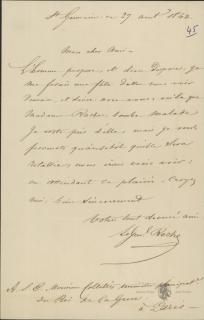 St Germain ce 29 avril 1842
45
Mon cher Ami
L'homme propose, et dieu dispose, je
me fesais une fête d'aller vous voir
demain, et dieu
Madame Roche tombe malade
Je reste près d'elle, mais je vous
promets qu'aussitôt qu'elle sera
rétablie, nous irons vous voir:
en attendant ce plaisir, croyez
moi, bien sincèrement
Votre tout dévoué ami
Roche
A S E Monsieur ministre
du Roi de la Grèce
à Paris